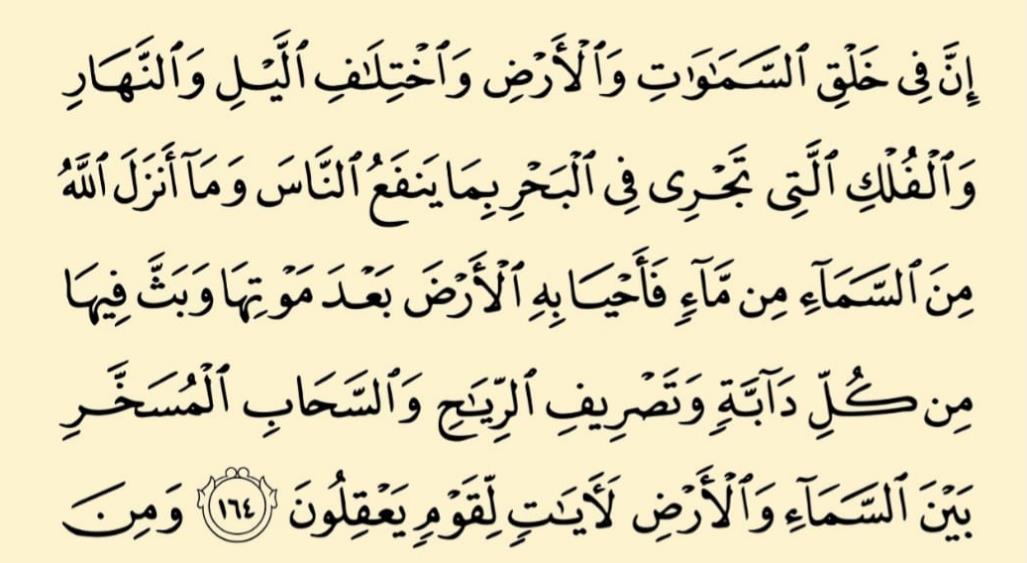 إِنَّ فِى خَلْقِ ٱلسَّمَـٰوَٰتِ وَٱلْأَرْضِ وَٱخْتِلَـٰفِ ٱلَّيْلِ وَٱلنَّهَارِ
وَٱلْفُلْكِ ٱلَّتِى تَجْرِى فِى ٱلْبَحْرِ بِمَا يَنفَعُ ٱلنَّاسَ وَمَآ أَنزَلَ ٱللَّهُ
مِنَ ٱلسَّمَآءِ مِن مَّآءٍ فَأَحْيَا بِهِ ٱلْأَرْضَ بَعْدَ مَوْتِهَا وَبَثَّ فِيهَا
مِن كُلِّ دَآبَّةٍ وَتَصْرِيفِ ٱلرِّيَـٰحِ وَٱلسَّحَابِ ٱلْمُسَخَّرِ
بَيْنَ ٱلسَّمَآءِ وَٱلْأَرْضِ لَـَٔايَـٰتٍ لِّقَوْمٍ يَعْقِلُونَ ١٦٤ وَمِنَ